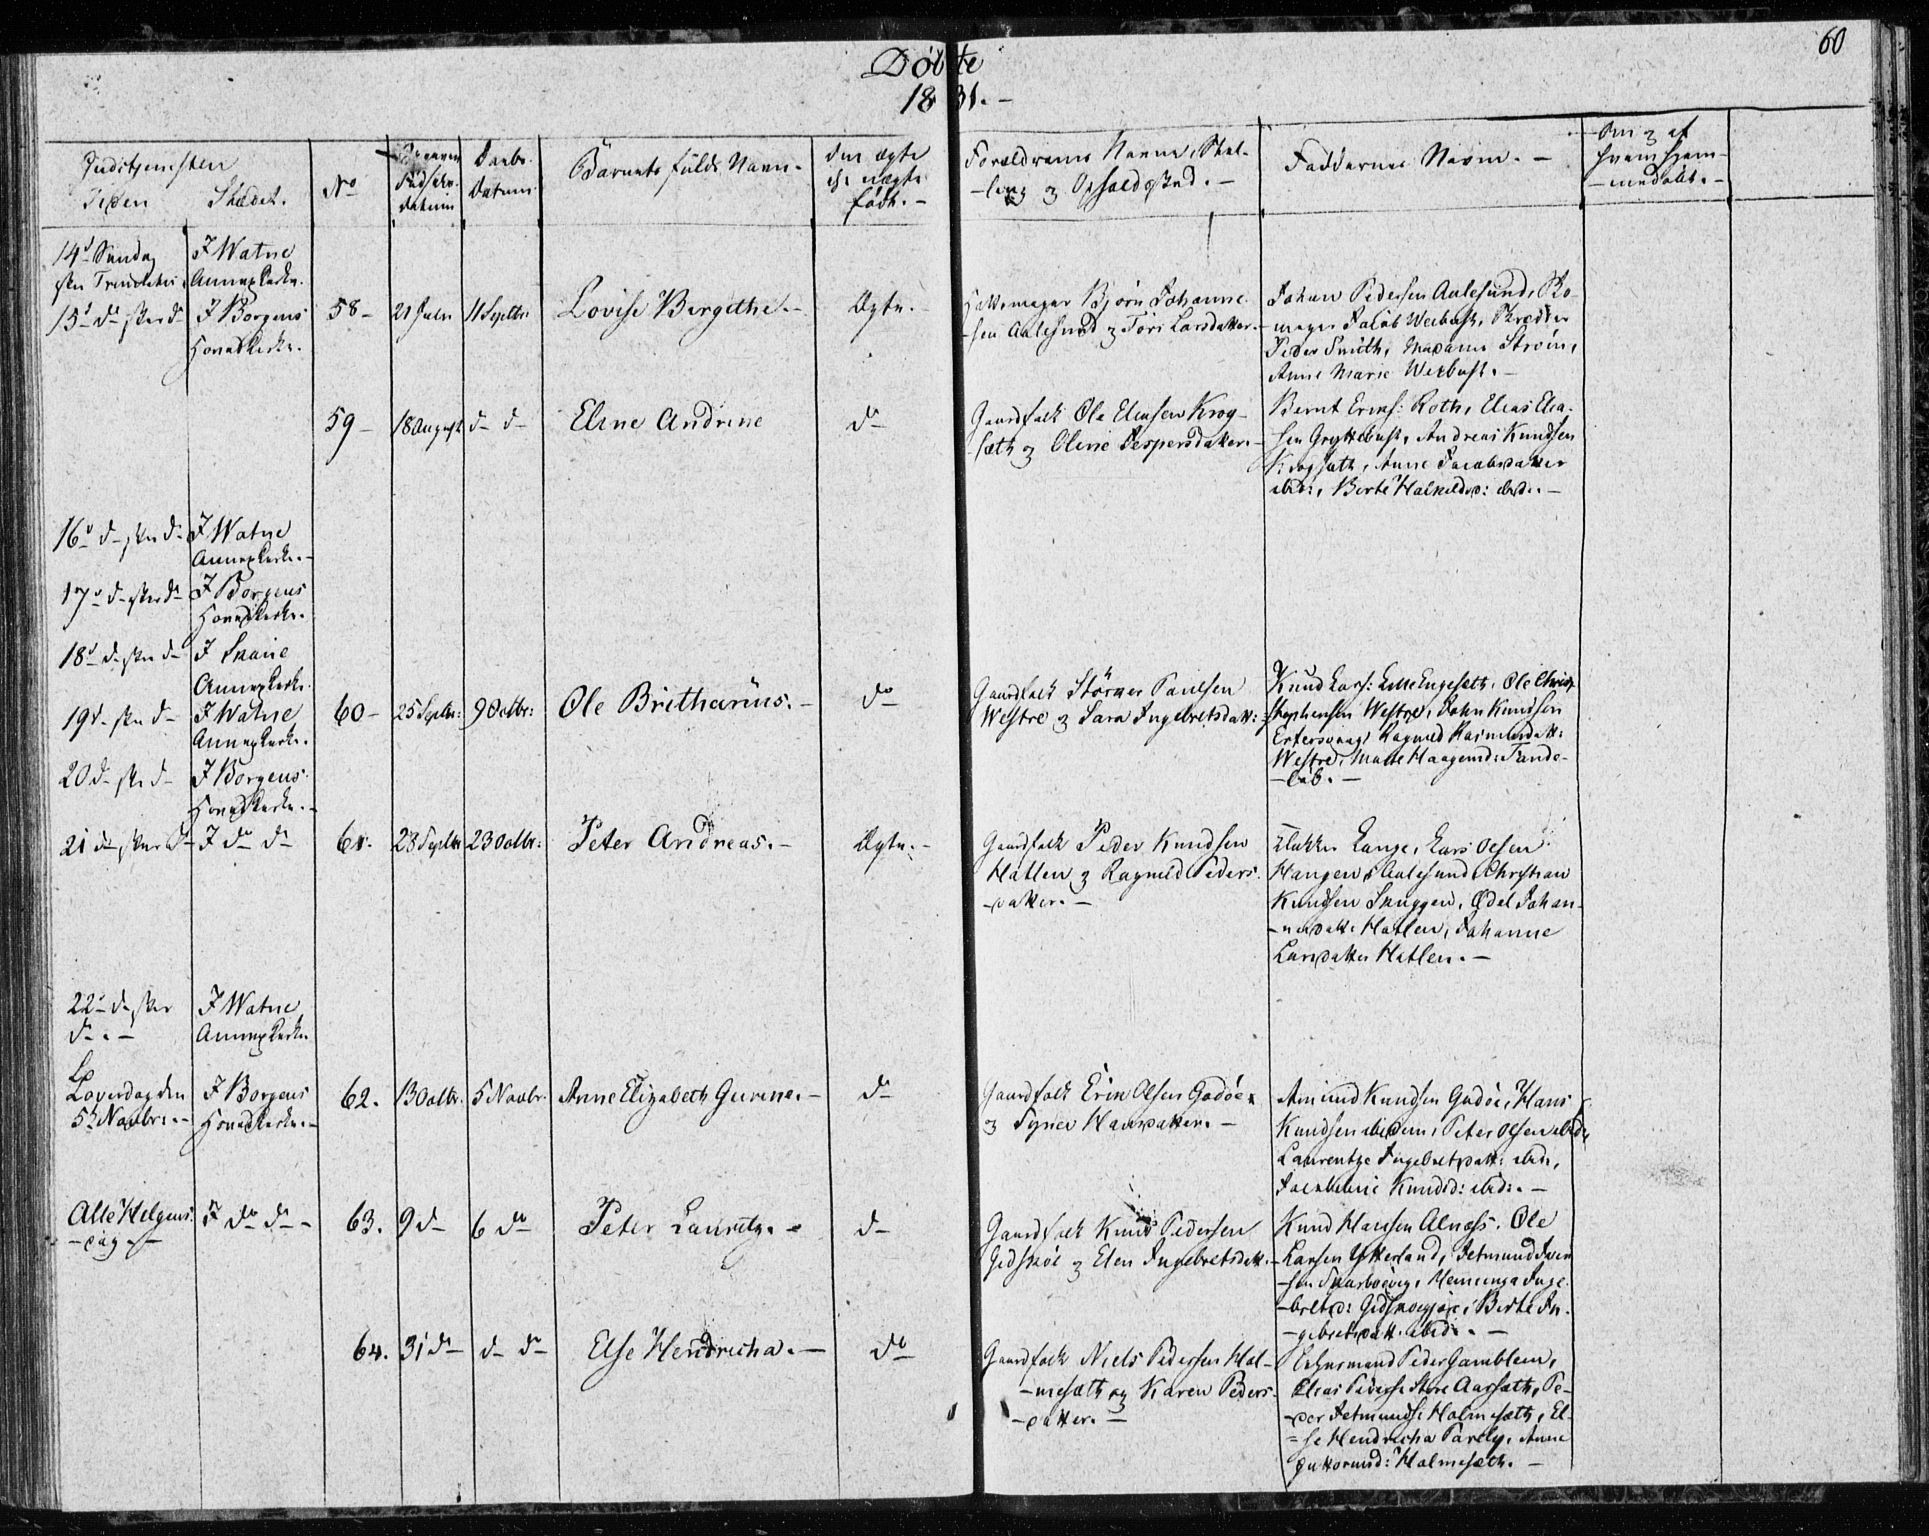 60
Døbte
1831.
Indtjenesten
Tiden Stædet.
No
Fødsels Datum
Daabs Datum
Barnets fulde Navn.
Om ægte eller uægte født.
Forældrenes Navne, Stilling og Opholdsted.
Faddernes Navne.
14d Søndag efter Trinitatis.
I Watne Annexkirke.
15d do efter do
I Borgens Hovedkirke.
58
21 Julii
11 Septbr.
Lovise Bergithe.
Ægte.
Hattemager Bjørn Johanne-
sen Aalesund og Tøri Larsdatter.
Johan Pedersen Aalesund, Sko-
mager Jacob Weibust, Skræder
Peder Smith, Madame Strøm,
Anne Marie Weibust.
59
18 August
do do
Eline Andrine
do
Gaardfolk Ole Eliasen Krog-
sæth og Oline Jespersdatter.
Bernt Erens: Roth, Elias Elia-
sen Gryttebust, Andreas Knudsen
Krogsæth, Anne Jacobsdatter
ibid:, Berte Halkildsd: ibid:
16d do efter do
I Watne Annexkirke.
17d do efter do
I Borgens Hovedkirke.
18d do efter do
I Skaue Annexkirke.
19d efter do
I Watne Annexkirke.
60
25 Septbr:
9 Octbr:
Ole Britharius.
do
Gaardfolk Størner Paulsen
Westre og Sara Ingebretsdatt:
Knud Lars: Lille Engesæth, Ole Christ-
stophersen Westre, John Knudsen
Estensvaag, Ragnild Rasmusdatt:
Westre, Malle Haagensd: Tande-
20 do efter do
I Borgens Hovedkirke.
21 do efter do
I do do
61.
23 Septbr
23 Octbr:
Peter Andreas.
Ægte.
Gaardfolk Peder Knudsen
Hatlen og Ragnild Peders-
datter.
Klokker Lange, Lars Olsen
Haugen, Aalesund, Christian
Knudsen Snuggen, Ødel Johan-
nesdatt: Hatlen, Johanne
Larsdatter Hatlen.
22d do efter do
I Watne Annexkirke
Løverdag den
5te Novbr.
I Borgens Hovedkirke.
62.
13 Octbr.
5 Novbr.
Anne Elizabeth Gurine.
do
Gaardfolk Erik Olsen Godøe
og Synev Hansdatter.
Amund Knudsen Godøe, Hans
Knudsen ibidem, Peter Olsen ibid:
Laurentze Ingebretsdatt: ibid:,
Knudsd: ibid:.
Alle Helgens-
dag.
I do do
63.
9 do
6 do
Peter Lauritz.
do
Gaardfolk Knud Pedersen
Gidskøe og Elen Ingebretsdatt.
Knud Hansen Alnæss, Ole
Larsen Ytterland, Jetmund Iver-
sen Skarbøevig, Henninga Inge-
bretsd: Gidskøegjøre, Berte In-
gebretsdatt. ibid:.
64.
31 do
do do
Else Hendricha.
do
Gaardfolk Niels Pedersen Hol-
mesæth og Karen Peders-
datter.
Huusmand Peder Gamblem,
Elias Peders: Store Aarsæth, Pe-
der Jetmunds: Holmesæth, El-
se Hendricha Parely, Anne
Guttormsd: Holmesæth.